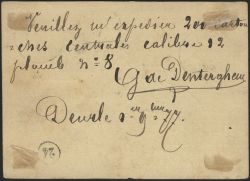 Veuillez m'expédier 200 cartou
=ches centrales calibre 12
plomb n° 8
G de Denterghem
Deurle 1er 9bre 77
24